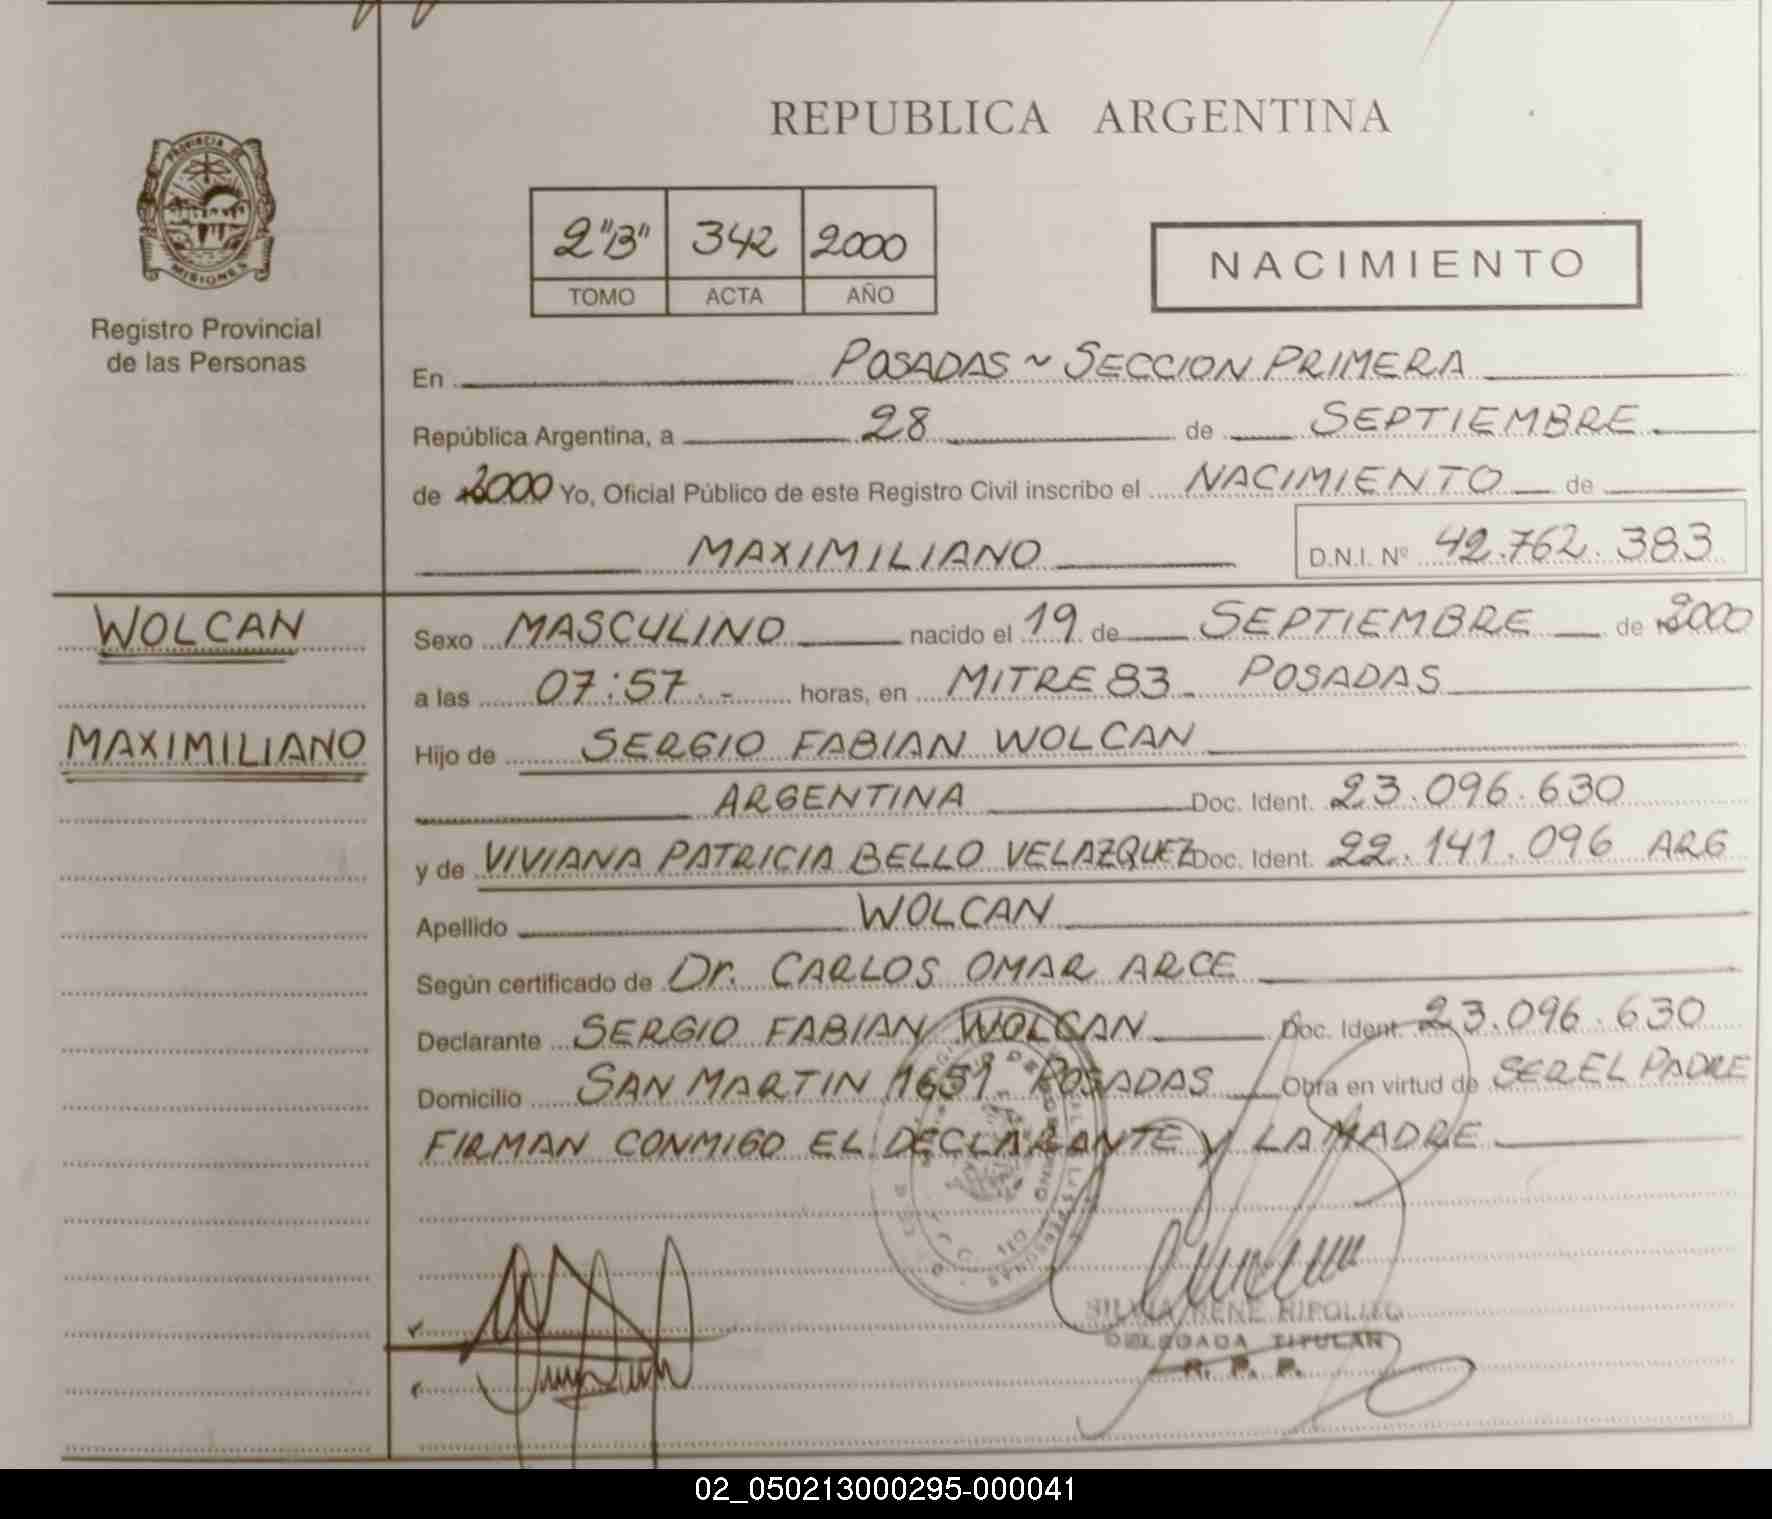 REPUBLICA ARGENTINA
PROVINCIA DE
MISIONES
Registro Provincial
de las Personas
2"B" 342 2000
TOMO ACTA AÑO
NACIMIENTO
En POSADAS ~ SECCION PRIMERA
República Argentina, a 28 de SEPTIEMBRE
de 2000 Yo, Oficial Público de este Registro Civil inscribo el NACIMIENTO de
MAXIMILIANO D.N.I. Nº 42.762.383
WOLCAN
MAXIMILIANO
Sexo MASCULINO nacido el 19 de SEPTIEMBRE de 2000
a las 07:57.- horas, en MITRE 83 - POSADAS
Hijo de SERGIO FABIAN WOLCAN
ARGENTINA Doc. Ident. 23.096.630
y de VIVIANA PATRICIA BELLO VELAZQUEZ Doc. Ident. 22.141.096 ARG
Apellido WOLCAN
Según certificado de Dr. CARLOS OMAR ARCE
Declarante SERGIO FABIAN WOLCAN Doc. Ident. 23.096.630
Domicilio SAN MARTIN 1651 POSADAS Obra en virtud de SER EL PADRE
FIRMAN CONMIGO EL DECLARANTE Y LA MADRE
SILVIA IRENE HIPOLITO
DELEGADA TITULAR
R. P. P.
02_050213000295-000041